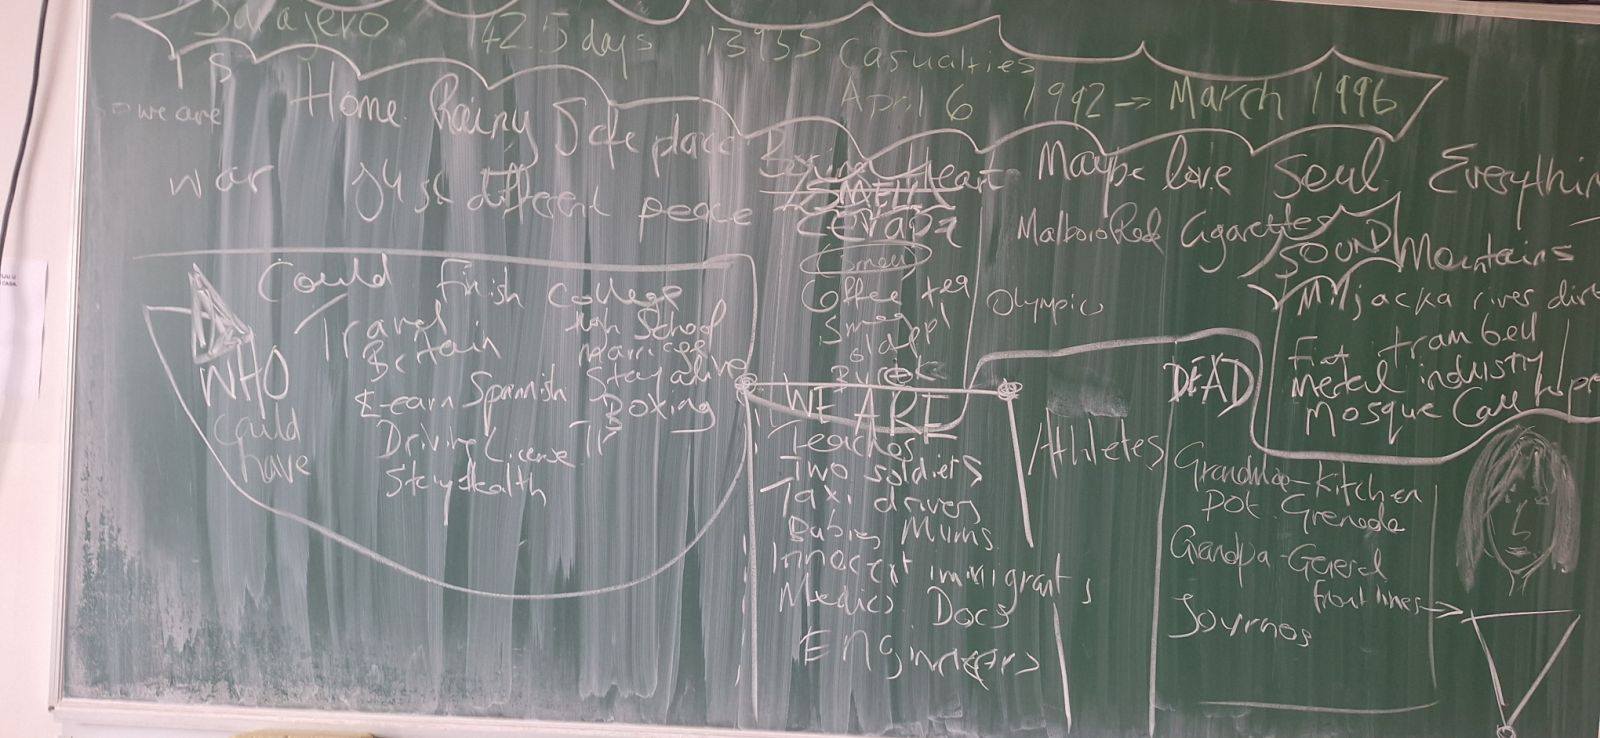 Sarajevo 1425 days 13955 Casualties
April 6 1992 → March 1996
IS
so we are Home Rainy Safe place Boring Heart Maybe love Soul Everythin
war Just different peace SMELL
CEVAPI Malboro Red Cigarettes SOUND Mountains
Smell
Coffee tea Olympic
Miljacka river dirt
Fiat tram bell
Metal industry
Mosque Call to
Burek
Could Finish College
High School
Travel Marriage
Britain Stay alive
Learn Spannish Boxing
Driving License
Stay Health
WHO
could
have
WE ARE
Teaches
Two soldiers
Taxi drives
Babies Mums
Innocent immigrants
Medics Docs
Engineers
Athletes
DEAD
Grandma-Kitchen
Pot Grenade
Grandpa-General
front lines →
Journos